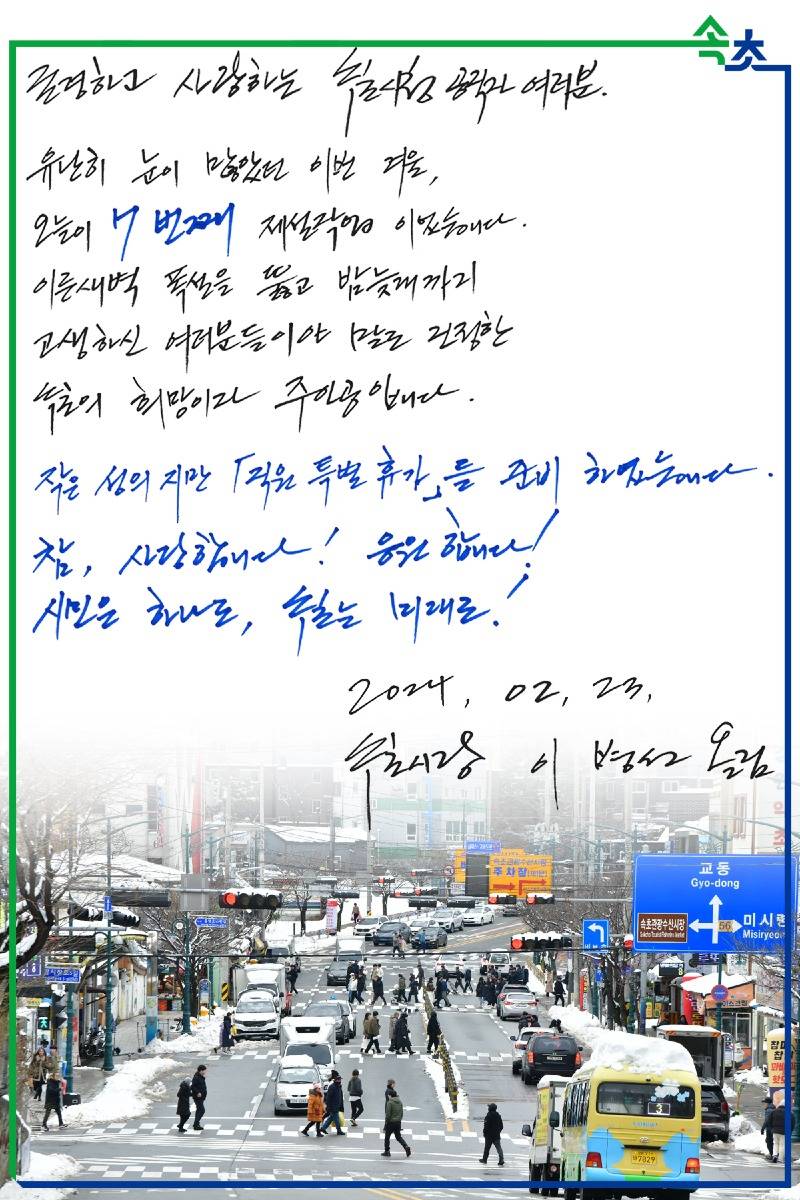 속초
존경하고 사랑하는 속초시청 공직자 여러분.
유난히 눈이 많았던 이번 겨울,
오늘이 7번째 제설작업 이었습니다.
이른새벽 폭설을 뚫고 밤늦게까지
고생하신 여러분들이야 말로 진정한
속초의 희망이자 주인공입니다.
작은 성의지만 「직원 특별휴가」를 준비 하였습니다.
참, 사랑합니다! 응원합니다!
시민은 하나로, 속초는 미래로!
2024. 02. 23.
속초시장 이병선 올림
속초관광수산시장
주차장
교동
Gyo-dong
미시령
Misiryeong
56
속초관광수산시장
3
7029